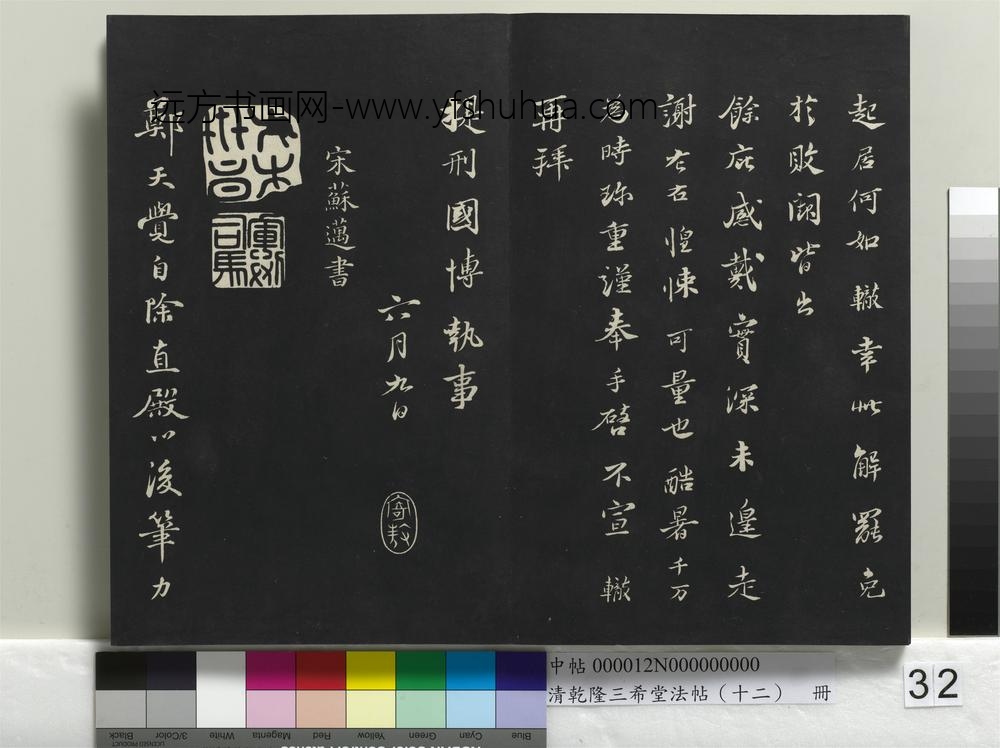 起居何如轍幸此解罷免
於敗闕皆出
餘庇感戴實深未遑走
謝左右惶悚可量也酷暑千万
為時珎重謹奉手啓不宣 轍
再拜
提刑國博執事
六月九日
宋蘇邁書
鄭天覺自除直殿以後筆力
远方书画网-www.yfshuhua.com
中帖 000012N000000000
清乾隆三希堂法帖（十二） 冊
32
Black
3/Color
White
Magenta
Red
Yellow
Green
Cyan
Blue
LICENSED PRODUCT